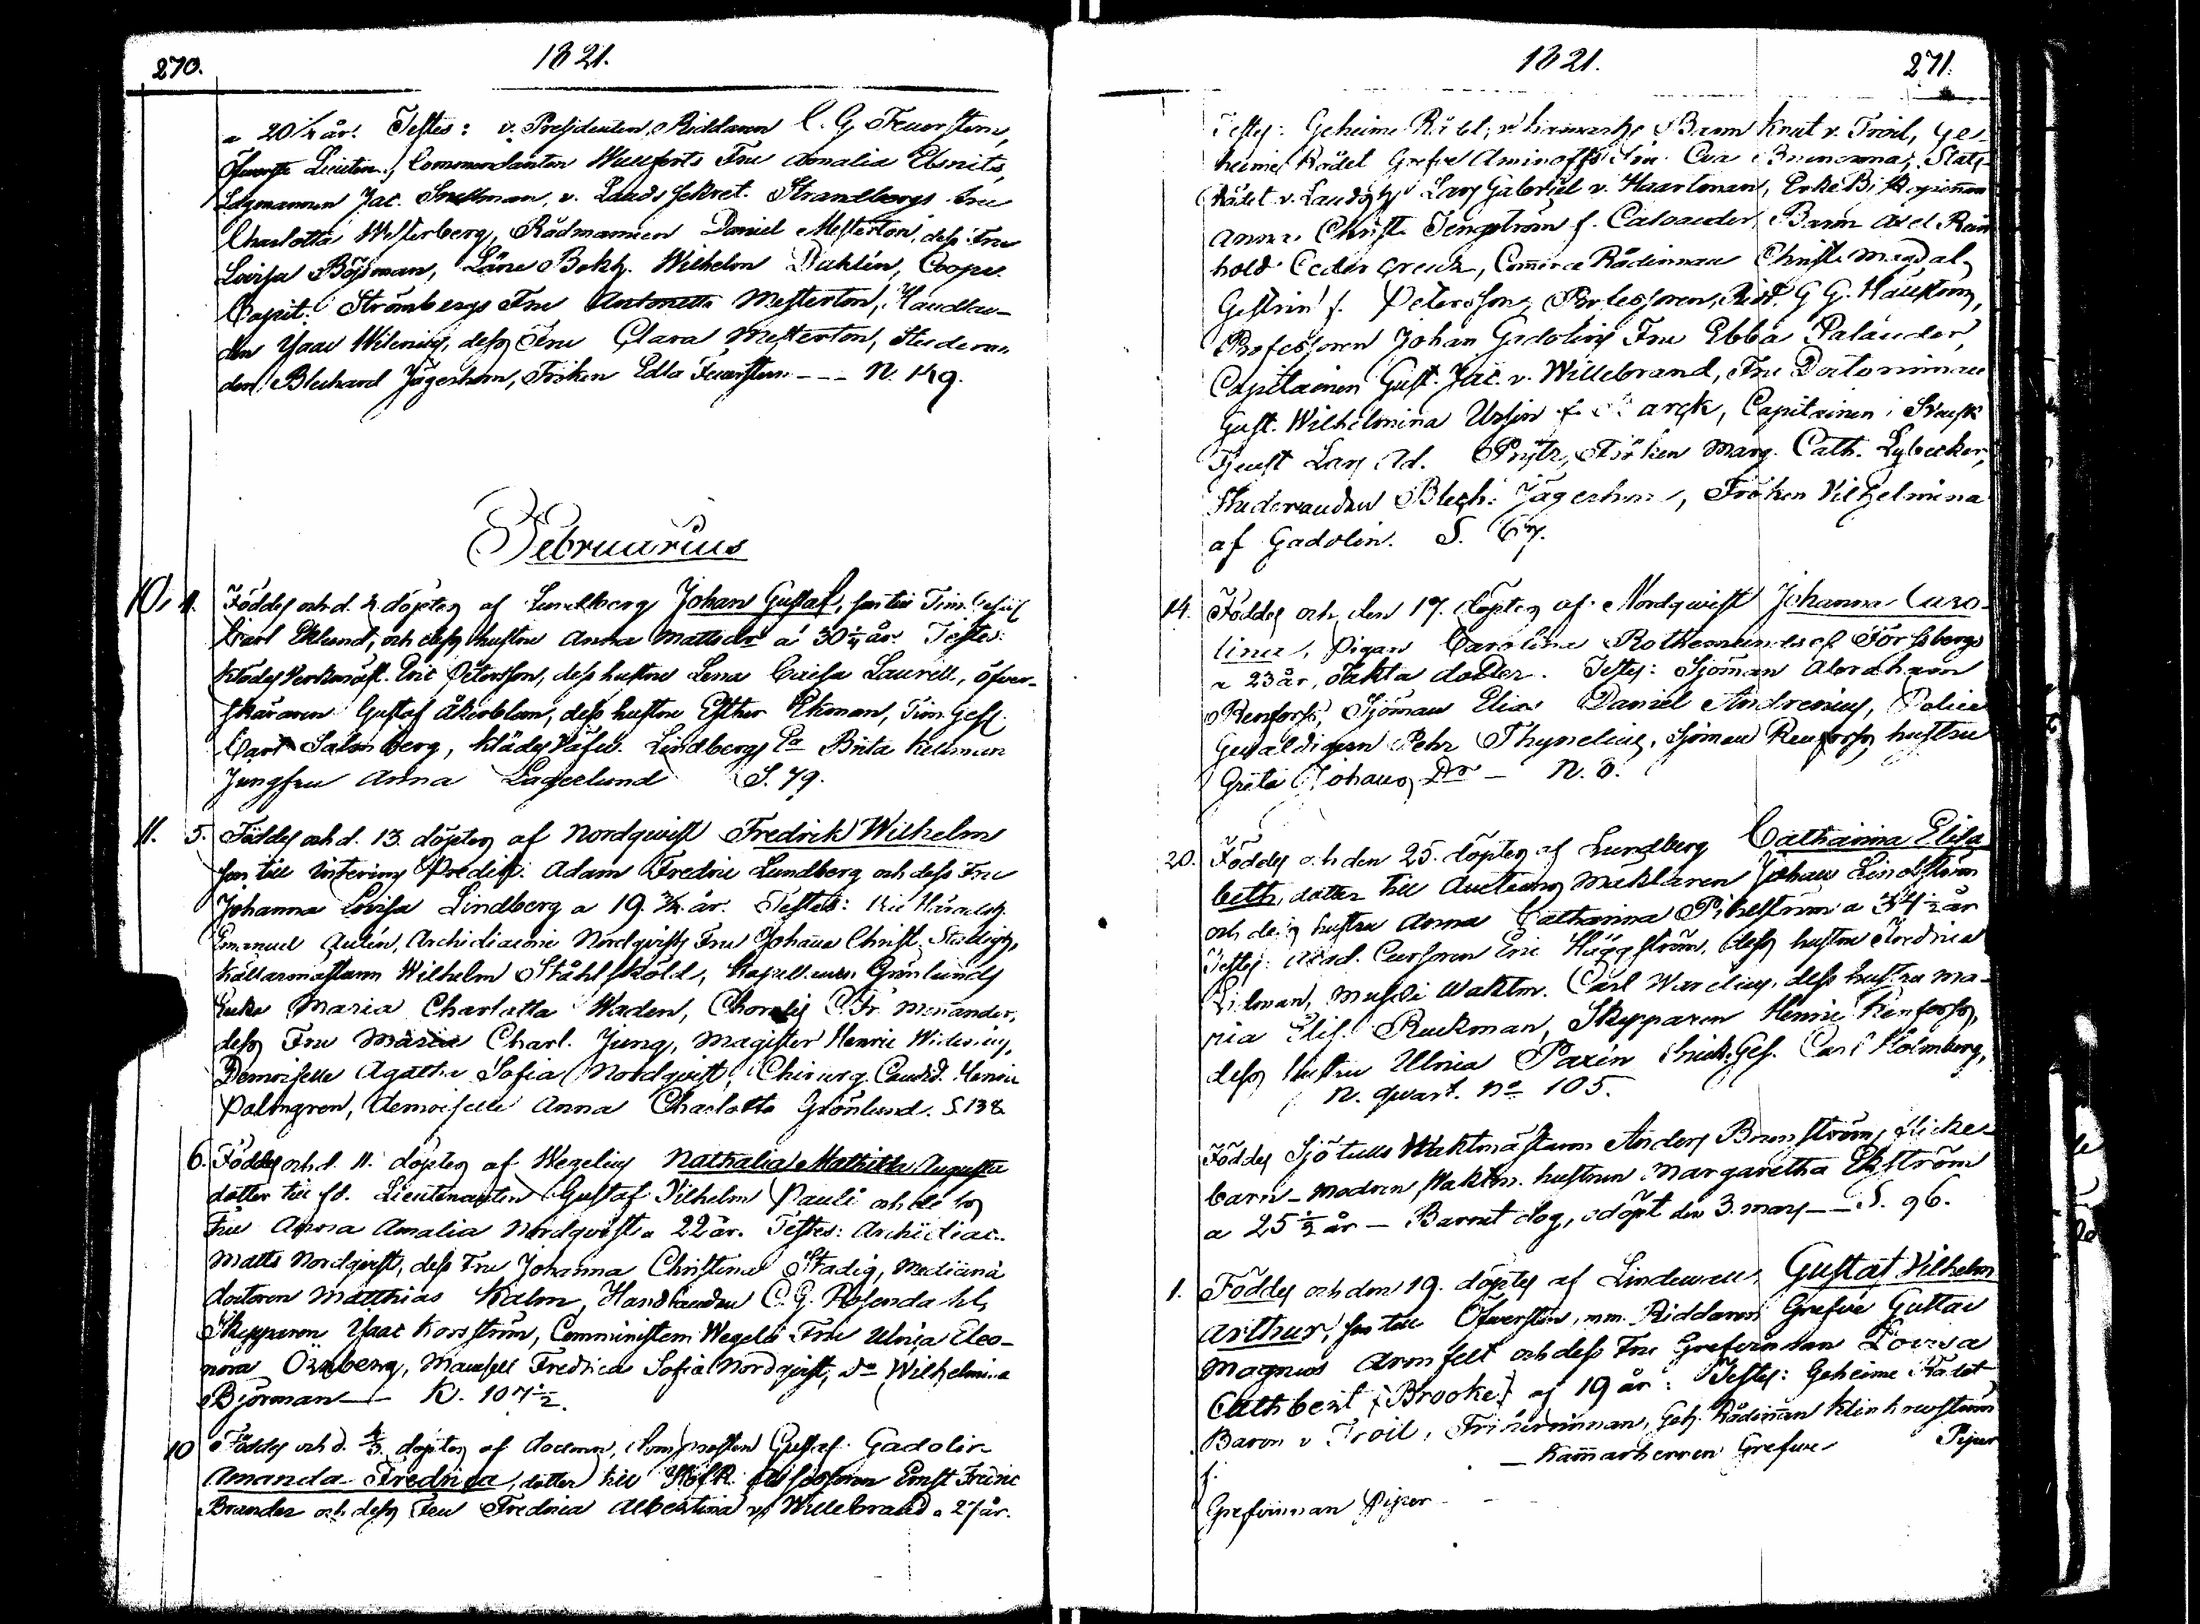 270.
1821.
a 20 1/4 år. Testes: v. Presidenten, Riddaren C. G. Feuerstern,
Öfverste Lieuten., Commendanten Fru Amalia Ebsnits,
Lagmannen Jac. Snellman, v. Lands Sekret. Strandbergs Fru
Charlotta Westerberg, Rådmannen Daniel Mesterton, dess Fru
Lovisa Bösman, Läns Bokh. Wilhelm Dahlén, Coopv.
Capit. Strömbergs Fru Antonetta Mesterton, Handlan-
den Isaac Wilenius, dess Fru Clara Mesterton, Studeran-
den Blechard Jägerhorn, Fröken Edla Feuerstern --- N. 149.
Februarius
10. 1. Föddes och d. 2 döptes af Lundberg Johan Gustaf, son till Tim. Gesäll
Carl Eklund, och dess hustru Anna Mattsdr a 30 1/4 år. Testes:
Klädesverkmäst. Eric Petersson, dess hustru Lena Caisa Laurell, öfver-
skäraren Gustaf Åkerblom, dess hustru Esther Ekman, Tim. Gesl.
Carl Salmberg, klädesväfv. Lindbergs Ea Brita Kellman
Jungfru Anna Lagerlund S. 79.
11. 5. Föddes och d. 13. döptes af Nordqvist Fredrik Wilhelm
son till Vinterings Predik. Adam Fredric Lundberg och dess Fru
Johanna Lovisa Lindberg a 19 3/4 år. Testes: Vice Häradsh.
Emanuel Aulén, Archidiacon Nordqvists Fru Johanna Christ. Stadigh,
Källarmästaren Wilhelm Ståhlsköld, Kapell. Grönlunds
Enka Maria Charlotta Waden, C. Fr. Menander,
dess Fru Maria Charl. Jung, Magister Henric Widenius,
Demoiselle Agatha Sofia Nordqvist, Chirurg. Candid. Henric
Palmgren, Demoiselle Anna Charlotta Grönlund. S. 138
6. Föddes och d. 11. döptes af Wegelius Nathalia Mathilda Augusta
dotter till fd. Lieutenanten Gustaf Vilhelm Pauli och dess
Fru Anna Amalia Nordqvist a 22 år. Testes: Archidiac.
Matts Nordqvist, dess Fru Johanna Christina Stadig, Medicinä
doctoren Matthias Kalm, Handlanden C. G. Rosendahl,
Skepparen Isaac Korsström, Comministern Wegelii Fru Ulrica Eleo-
nora Örnberg, Mamsell Fredrica Sofia Nordqvist, Do Wilhelmina
Björman — K. 107 1/2.
10 Föddes och d. 4/3. döptes af docenten, Domprosten Gustaf Gadolin
Amanda Fredrica, dotter till HofR. Assessoren Ernst Fredric
Brander och dess Fru Fredrica Albertina v. Willebrand a 27 år.
1821.
271.
Testes: Geheime Rådet, Baron Knut v. Troil, Ge-
heime Rådet Grefve Aminoffs Fru Eva, Stats-
Rådet v. Landshöfd Lars Gabriel v. Haartman, Erke Biskopinnan
Anna Christ. Tengström f. Caloander, Baron Axel Rein
hold Cedercreutz, Comerce Rådinnan Christ. Magdal.
Gestrin f. Petersson, Professoren, Ridd. G. G. Hällström,
Professoren Johan Gadolins Fru Ebba Palander,
Capitainen Gust. Jac. v. Willebrand, Fru
Gust. Wilhelmina Ursin f., Capitainen i Svensk
Tjenst Lars Ad. Prytz, Fröken Marg. Cath. Lybecker,
Studeranden Blech. Jägerhorn, Fröken Vilhelmina
af Gadolin. S. 67.
14. Föddes och den 17. döptes af Nordqwist Johanna Caro-
lina, Pigan Carolina Försbergs
a 23 år, oäkta dotter. Testes: Sjöman Abraham
Renfors, Sjöman Elias Daniel Andrenius, Police
Gevaldigern Pehr Thynelius, Sjöman Renfors hustru
Greta Johans Dr — N. 8.
20. Föddes och den 25. döptes af Lundberg Catharina Elisa
beth, dotter till Auctions Mäklaren Johan Lindström
och dess hustru Anna Catharina a 34 1/2 år
Testes: Acad. Cursoren Eric Häggström, dess hustru Fredrica
Wilman, Waktm. Carl Warelius, dess hustru Ma-
ria Elis. Ruckman, Skepparen Henric Renfors,
dess hustru Ulrica Paxén, Snick. Ges. Carl Holmberg,
N. qvart. No 105.
Föddes Sjötulls Waktmästaren Anders Brunström, flicke-
barn — Modren, Waktm. hustrun Margaretha Ekström
a 25 1/2 år — Barnet dog, odöpt den 3. mars — S. 96.
1. Föddes och den 19. döptes af Lindewall, Gustaf Vilhelm
Arthur, son till Öfversten, mm. Riddaren Grefve Gustaf
Magnus Armfelt och dess Fru Grefvinnan Lovisa
Cathbert (Brooke) af 19 år: Testes: Geheime Rådet
Baron v Troil, Friherrinnan, Geh. Rådinnan Klinkowström
f. — Kammarherren Grefve Piper
Grefvinnan Piper - -